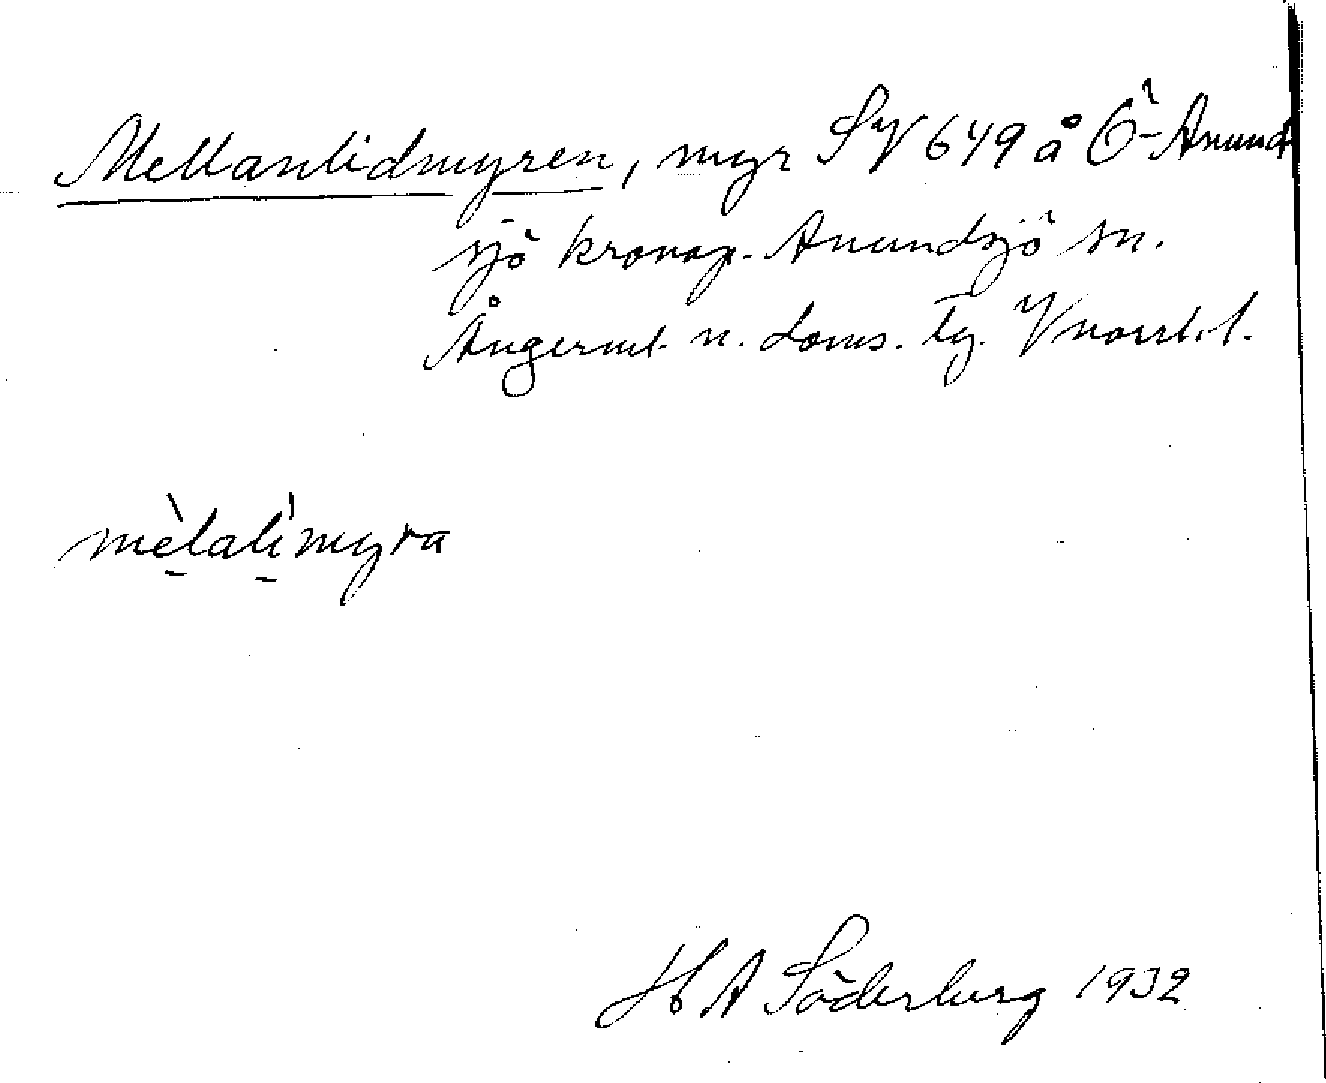 Mellanlidmyren, myr SV 649 å Ö-Anund
sjö kronop. Anundsjö sn.
Ångerml. n. doms. tg. Vnorrl. l.
mèlalímyra
H A Söderberg 1932